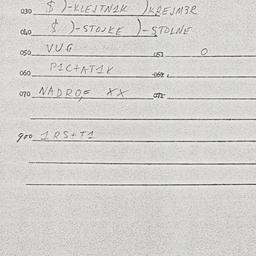 030 $ )-KLEJTN1K )KREJM3R
040 $ )-STOJKE )-STOLNE
050 VUG 051 O
060 P1C+AT1K 061
070 NADROE XX 071
900 1RS+T1